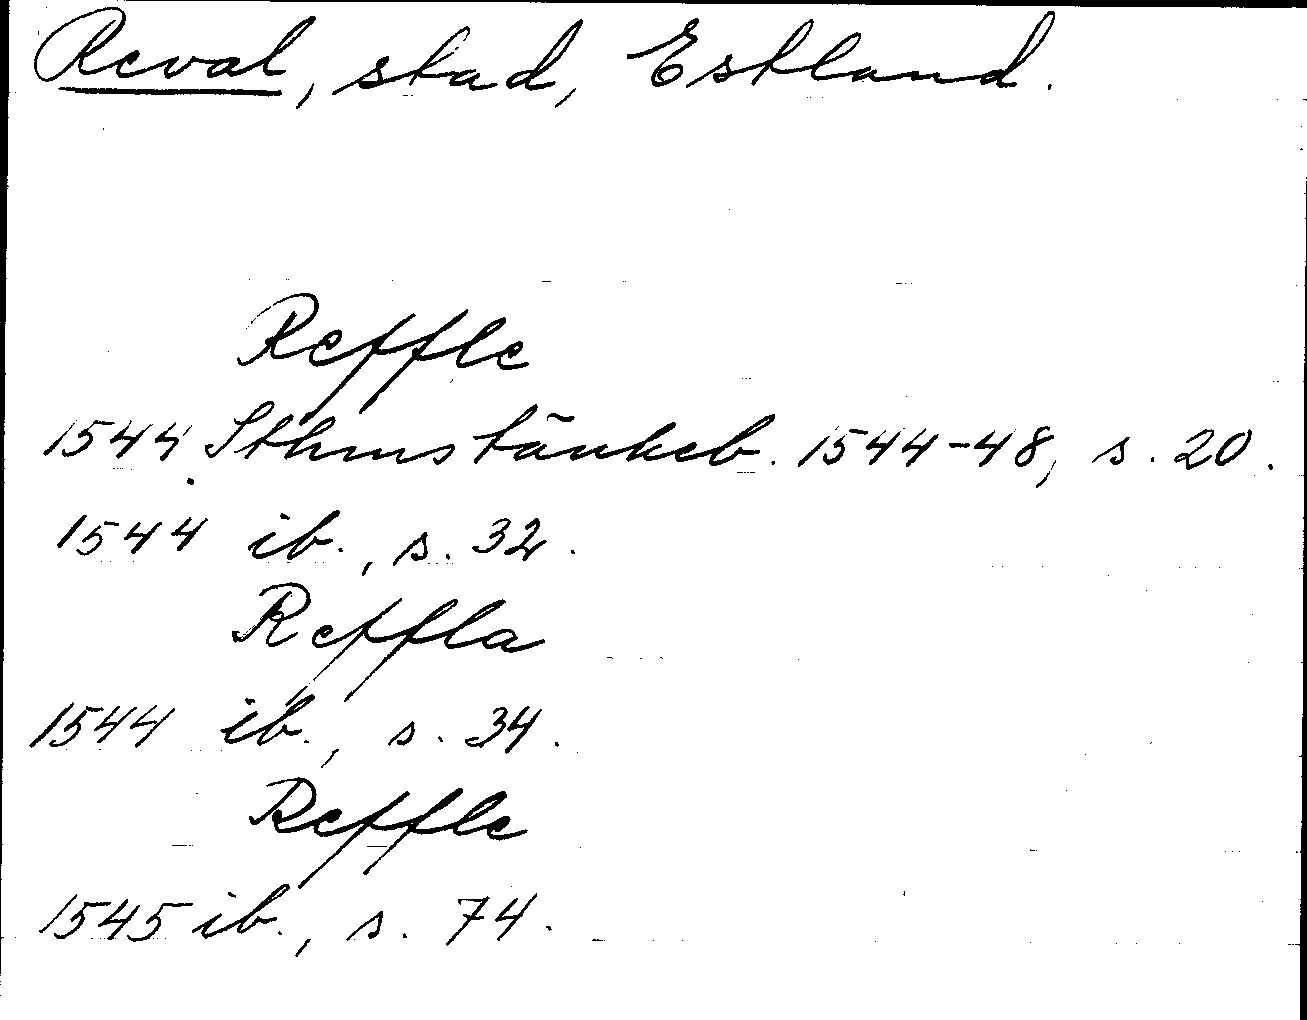 Reval, stad, Estland.
Reffle
1544 Sthmstänkeb. 1544-48, s. 20.
1544 ib., s. 32.
Reffla
1544 ib., s. 34.
Reffle
1545 ib., s. 74.